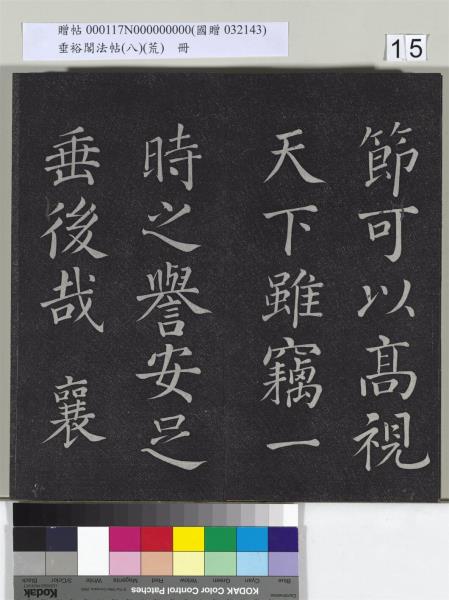 贈帖 000117N000000000(國贈 032143)
垂裕閣法帖(八)(荒) 冊
15
節可以高視
天下雖竊一
時之譽安足
垂後哉 襄
Blue
Cyan
Green
Yellow
Red
Magenta
White
3/Color
Black
Kodak
KODAK Color Control Patches